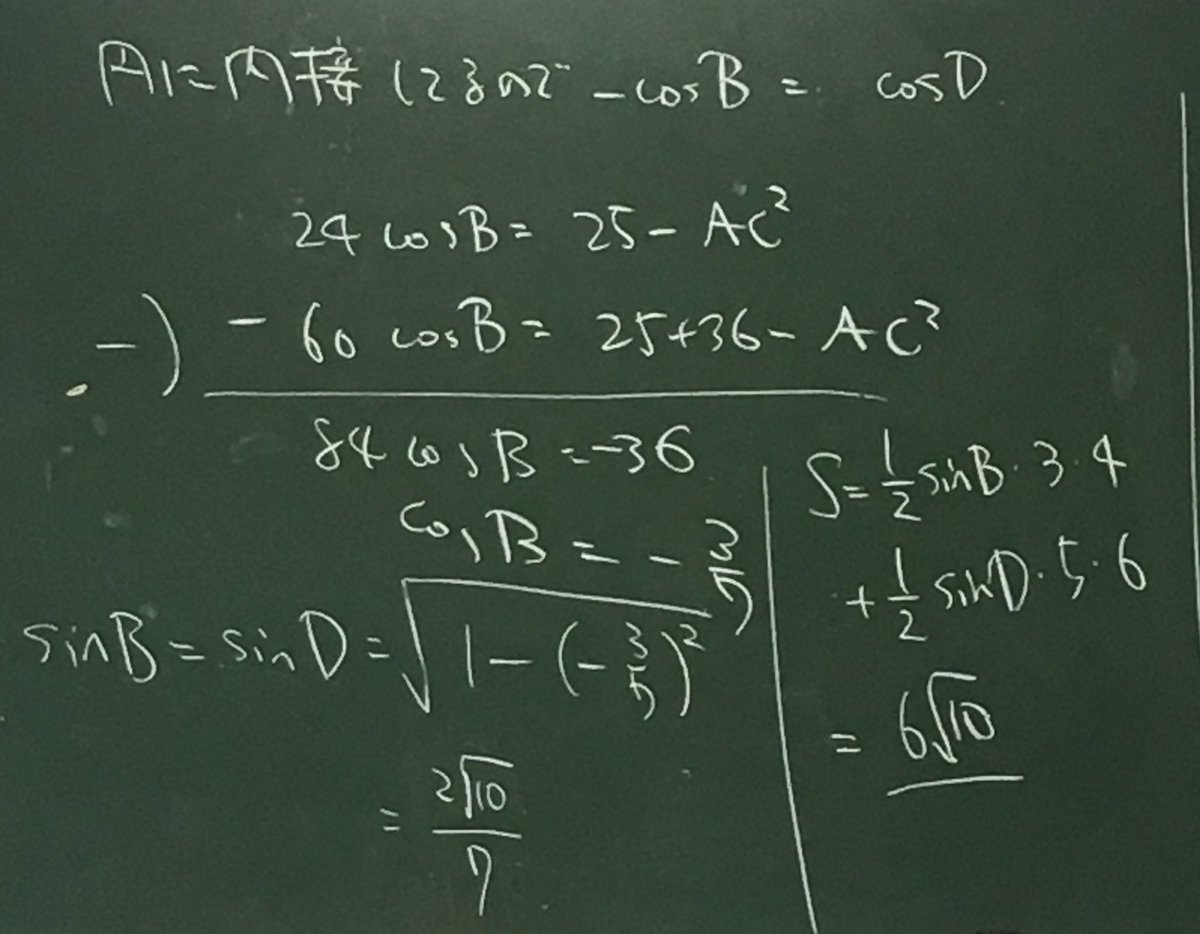 円に内接しているので -cosB = cosD
24 cosB = 25 - AC²
-) - 60 cosB = 25+36 - AC²
84 cosB = -36
cosB = - 3/7
sinB = sinD = √(1 - (-3/7)²)
= 2√10/7
S = 1/2 sinB · 3 · 4
+ 1/2 sinD · 5 · 6
= 6√10